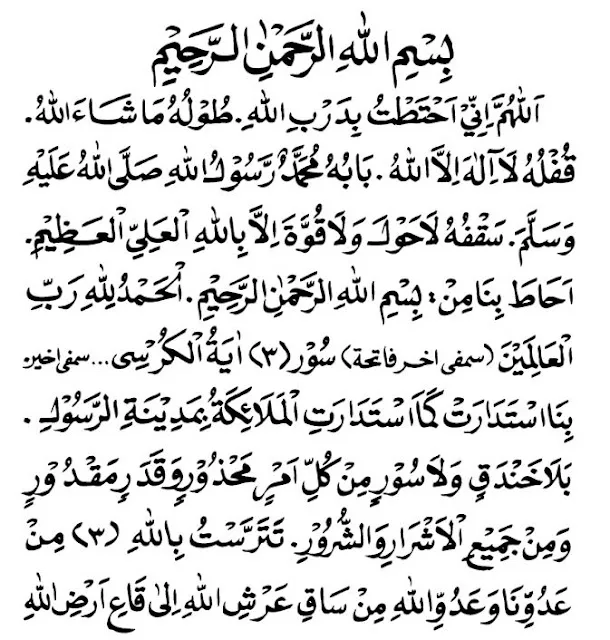 بِسْمِ اللهِ الرَّحْمٰنِ الرَّحِيْمِ
اَللّٰهُمَّ اِنِّيْ اَحْتَطْتُ بِدَرْبِ اللهِ. طُوْلُهُ مَا شَاءَ اللهُ.
قُفْلُهُ لَا اِلٰهَ اِلَّا اللهُ. بَابُهُ مُحَمَّدٌ رَسُوْلُ اللهِ صَلَّى اللهُ عَلَيْهِ
وَسَلَّمَ. سَقْفُهُ لَاحَوْلَ وَلَا قُوَّةَ اِلَّا بِاللهِ الْعَلِيِّ الْعَظِيْمِ.
اَحَاطَ بِنَا مِنْ: بِسْمِ اللهِ الرَّحْمٰنِ الرَّحِيْمِ. اَلْحَمْدُ لِلّٰهِ رَبِّ
الْعَالَمِيْنَ (سمفى اخر فاتحة) سُوْر (٣) اٰيَةُ الْكُرْسِى ... سمفى اخير.
بِنَا اسْتَدَارَتْ كَمَا اسْتَدَارَتِ الْمَلَائِكَةُ بِمَدِيْنَةِ الرَّسُوْلِ.
بِلَا خَنْدَقٍ وَلَا سُوْرٍ مِنْ كُلِّ اَمْرٍ مَحْذُوْرٍ وَقَدَرٍ مَقْدُوْرٍ
وَمِنْ جَمِيْعِ الْاَشْرَارِ وَالشُّرُوْرِ. تَتَرَّسْتُ بِاللهِ (٣) مِنْ
عَدُوِّنَا وَعَدُوِّ اللهِ مِنْ سَاقِ عَرْشِ اللهِ اِلَى قَاعِ اَرْضِ اللهِ